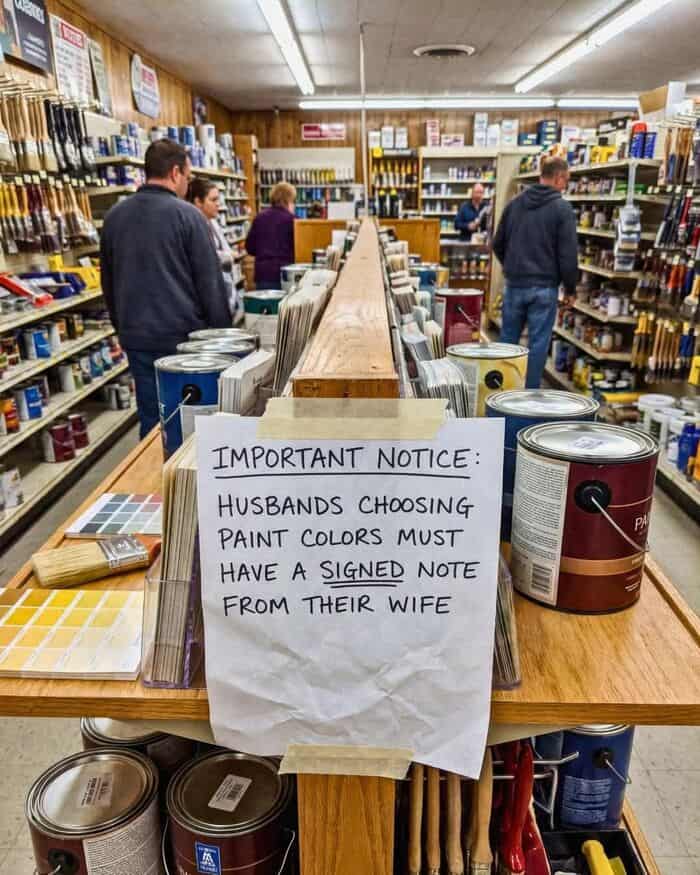 IMPORTANT NOTICE:
HUSBANDS CHOOSING
PAINT COLORS MUST
HAVE A SIGNED NOTE
FROM THEIR WIFE
PA